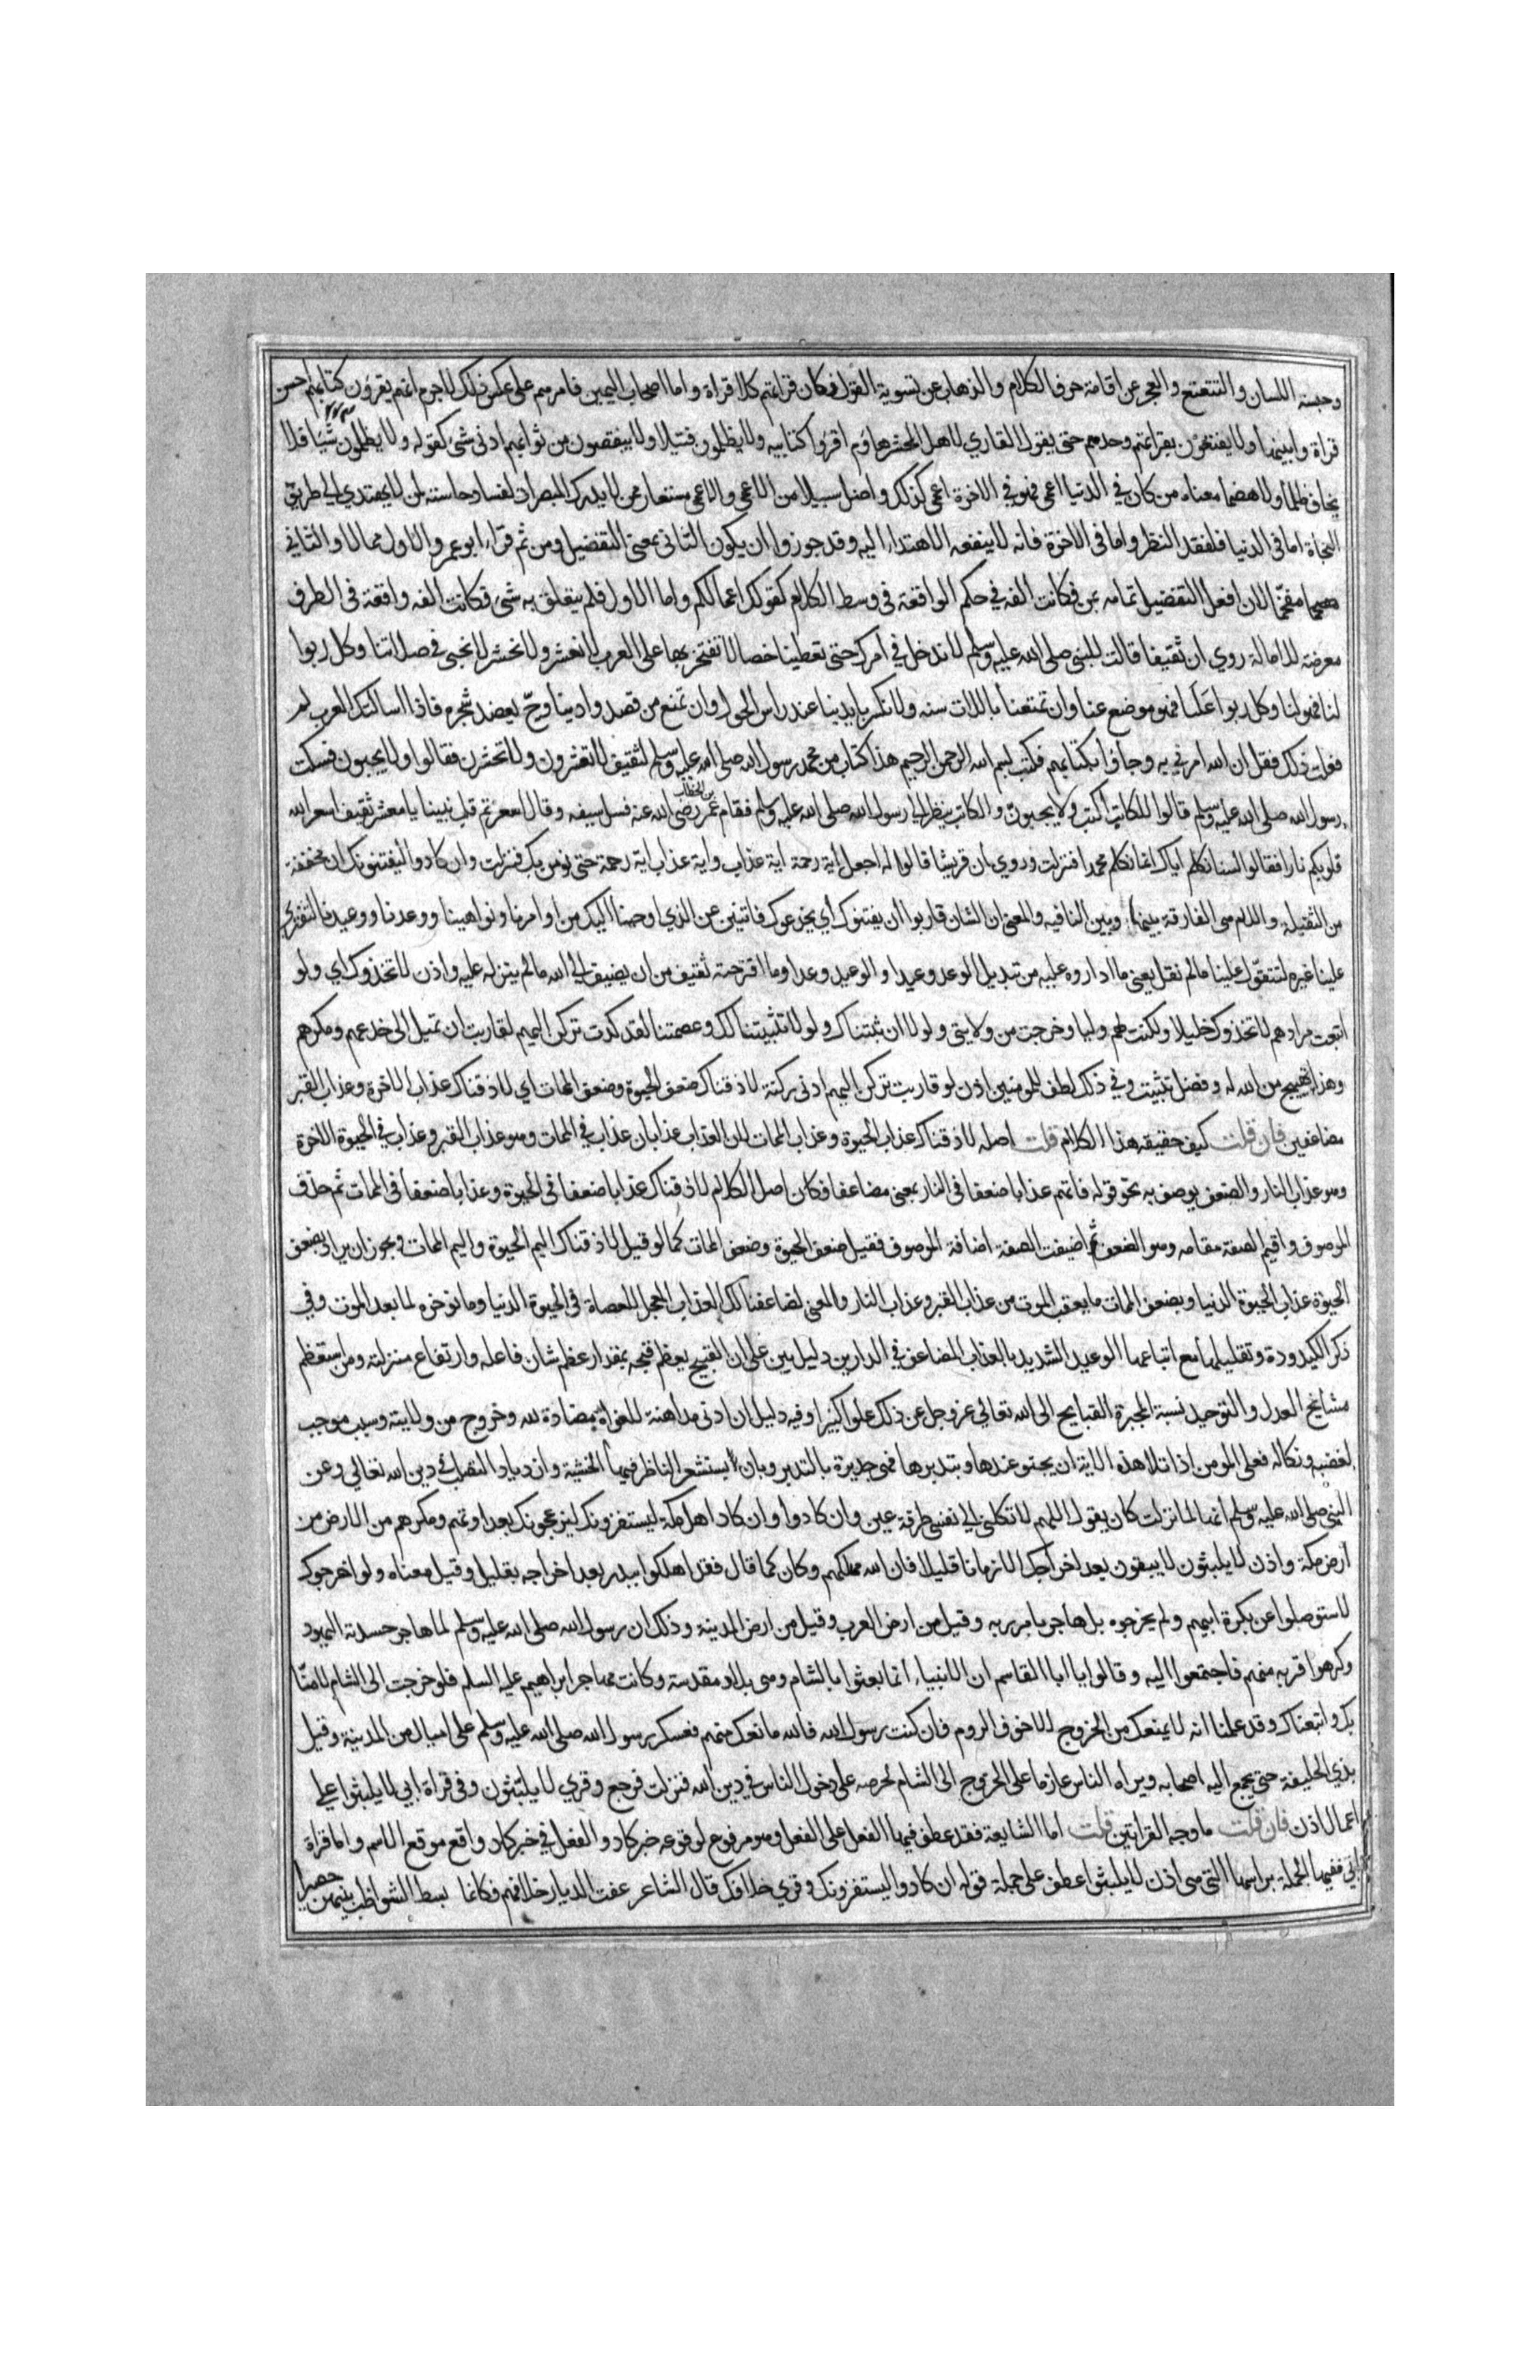 وحبسة اللسان والتتعتع والعجز عن اقامة حروف الكلام والذهاب عن تسوية القول فكان قراءتهم كلا قراة واما اصحاب اليمين فامرهم على عكس ذلك لا جرم انهم يقرؤن كتابهم احسن
قراة وابينها ولا يقنعون بقراءتهم وحدهم حتى يقول القاري لاهل المحشر هاؤم اقرؤا كتابيه ولا يظلمون فتيلا ولا ينقصون من ثوابهم ادنى شئ كقوله ولا يظلمون شيئا فلا
يخاف ظلما ولا هضما معناه من كان في الدنيا اعمى فهو في الاخرة اعمى كذلك واضل سبيلا من الاعمى والاعمى مستعار ممن لا يدرك المبصرات لفساد حاسته لمن لا يهتدي الى طريق
النجاة اما في الدنيا فلفقد النظر واما في الاخرة فلانه لا ينفعه الاهتداء اليه وقد جوزوا ان يكون الثاني بمعنى التفضيل ومن ثم قراء ابو عمرو الاول ممالا والثاني
مفخما لان افعل التفضيل تمامه بمن فكانت الفه في حكم الواقعة في وسط الكلام كقولك اعمالكم واما الاول فلم يتعلق به شئ فكانت الفه واقعة في الطرف
معرضة للامالة روي ان ثقيفا قالت للنبي صلى الله عليه وسلم لا ندخل في امرك حتى تعطينا خصالا نفتخر بها على العرب لا نعشر ولا نحشر لا نجبي في صلاتنا وكل ربوا
لنا فهو لنا وكل ربوا علينا فهو موضوع عنا وان تمتعنا باللات سنه ولا نكسرها بايدينا عند راس الحول وان تمنع من قصد وادينا وج يعضد شجره فاذا سالتك العرب لم
فعلت ذلك فقل ان الله امرني به وجاؤا بكتابهم فكتب بسم الله الرحمن الرحيم هذا كتاب من محمد رسول الله صلى الله عليه وسلم لثقيف لا تعشرون ولا تحشرن فقالوا ولا يجبون فسكت
رسول الله صلى الله عليه وسلم قالوا للكاتب اكتب ولا يجبون والكاتب ينظر الى رسول الله صلى الله عليه وسلم فقام عمر بن الخطاب رضى الله عنه فسل سيفه وقال اسعرتم قلب نبينا يا معشر ثقيف اسعر الله
قلوبكم نارا فقالوا لسنا نكلم اياك انما نكلم محمدا فنزلت وروي ان قريشا قالوا له اجعل اية رحمة اية عذاب واية عذاب اية رحمة حتى نومن بك فنزلت وان كادوا ليفتنونك ان مخففة
من الثقيلة واللام هي الفارقة بينها وبين النافيه والمعنى ان الشان قاربوا ان يفتنوك اي يخدعوك فاتنين عن الذي اوحينا اليك من اوامرنا ونواهينا ووعدنا ووعيدنا لتفتري
علينا غيره لتتقول علينا مالم نقل يعني ما اداروه عليه من تبديل الوعد وعيدا والوعيد وعدا وما اقترحته ثقيف من ان يضيف الى الله مالم ينزله عليه واذن لا تخذوك اي ولو
اتبعت مرادهم لا تخذوك خليلا ولكنت لهم وليا وخرجت من ولايتي ولولا ان ثبتناك ولولا تثبيتنا لك وعصمتنا لقد كدت تركن اليهم لقاربت ان تميل الى خدعهم ومكرهم
وهذا تهييج من الله له وفضل تثبيت وفي ذلك لطف للمومنين اذن لو قاربت تركن اليهم ادنى ركنة لاذقناك ضعف الحيوة وضعف الممات اي لاذقناك عذاب الاخرة وعذاب القبر
مضاعفين فان قلت كيف حقيقه هذا الكلام قلت اصله لاذقناك عذاب الحيوة وعذاب الممات لان العذاب عذابان عذاب في الممات وهو عذاب القبر وعذاب في الحيوة الاخرة
وهو عذاب النار والضعف يوصف به نحو قوله فاتهم عذابا ضعفا في النار بمعنى مضاعفا فكان اصل الكلام لاذقناك عذابا ضعفا في الحيوة وعذابا ضعفا في الممات ثم حذف
الموصوف واقيم الصفة مقامه وهو الضعف ثم اضيفت الصفة اضافة الموصوف فقيل ضعف الحيوة وضعف الممات كما لو قيل لاذقناك اليم الحيوة واليم الممات ويجوز ان يراد بضعف
الحيوة عذاب الحيوة الدنيا وبضعف الممات ما يعقب الموت من عذاب القبر وعذاب النار والمعنى لضاعفنا لك العذاب المعجل للعصاة في الحيوة الدنيا وما نوخره لما بعد الموت وفي
ذكر الكيدودة وتقليلها مع اتباعها الوعيد الشديد بالعذاب المضاعف في الدارين دليل بين على ان القبيح يعظم قبحه بمقدار عظم شان فاعله وارتفاع منزلته ومن استعظم
مشايخ العدل والتوحيد نسبة المجبرة القبايح الى الله تعالى عز وجل عن ذلك علوا كبيرا وفيه دليل ان ادنى مداهنة للغواة مضادة لله وخروج من ولايته وسبب موجب
لغضبه ونكاله فعلى المومن اذا تلا هذه الاية ان يجثو عندها ويتدبرها فهي جديرة بالتدبر وبان يستشعر الناظر فيها الخشية وازدياد التصلب في دين الله تعالى وعن
النبي صلى الله عليه وسلم انها لما نزلت كان يقول اللهم لا تكلني الى نفسي طرفة عين وان كادوا وان كاد اهل مكة ليستفزونك ليزعجونك بعداوتهم ومكرهم من الارض من
ارض مكة واذن لا يلبثون لا يبقون بعد اخراجك الا زمانا قليلا فان الله مهلكهم وكان كما قال فقد اهلكوا ببدر بعد اخراجه بقليل وقيل معناه ولو اخرجوك
لاستوصلوا عن بكرة ابيهم ولم يخرجوه بل هاجر بامر ربه وقيل من ارض العرب وقيل من ارض المدينة وذلك ان رسول الله صلى الله عليه وسلم لما هاجر حسدته اليهود
وكرهوا قربه منهم فاجتمعوا اليه وقالوا يا ابا القاسم ان الانبياء انما بعثوا بالشام وهي بلاد مقدسة وكانت مهاجر ابراهيم عليه السلم فلو خرجت الى الشام لامنا
بك واتبعناك وقد علمنا انه لا يمنعك من الخروج الا خوف الروم فان كنت رسول الله فالله مانعك منهم فعسكر رسول الله صلى الله عليه وسلم على اميال من المدينة وقيل
بذي الحليفة حتى يجمع اليه اصحابه ويراه الناس عازما على الخروج الى الشام لحرصه على دخول الناس في دين الله فنزلت فرجع وقري لا يلبثون وفي قراة ابي لا يلبثوا على
اعمال اذن فان قلت ما وجه القراتين قلت اما الشايعة فقد عطف فيها الفعل على الفعل وهو مرفوع لوقوعه خبر كاد والفعل في خبر كاد واقع موقع الاسم واما قراة
ابي ففيها الجملة براسها التي هي اذن لا يلبثوا عطف على جملة قوله ان كادوا ليستفزونك وقري خلافك قال الشاعر عفت الديار خلافهم فكانما بسط الشواطب بينهن حصيرا